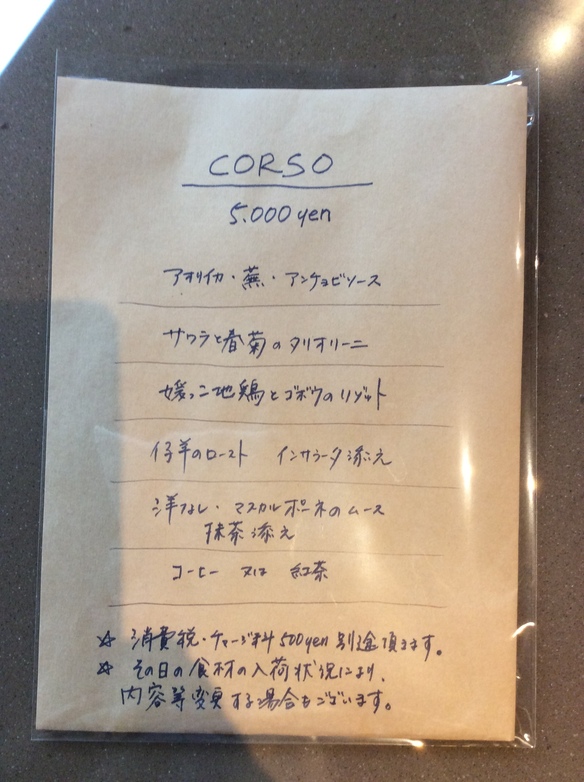 CORSO
5.000 yen
アオリイカ・蕪・アンチョビソース
サワラと春菊のタリオリーニ
媛っこ地鶏とゴボウのリゾット
仔羊のロースト インサラータ添え
洋なし・マスカルポーネのムース
抹茶添え
コーヒー 又は 紅茶
☆ 消費税・チャージ料500yen 別途頂きます。
☆ その日の食材の入荷状況により、
内容等変更する場合もございます。